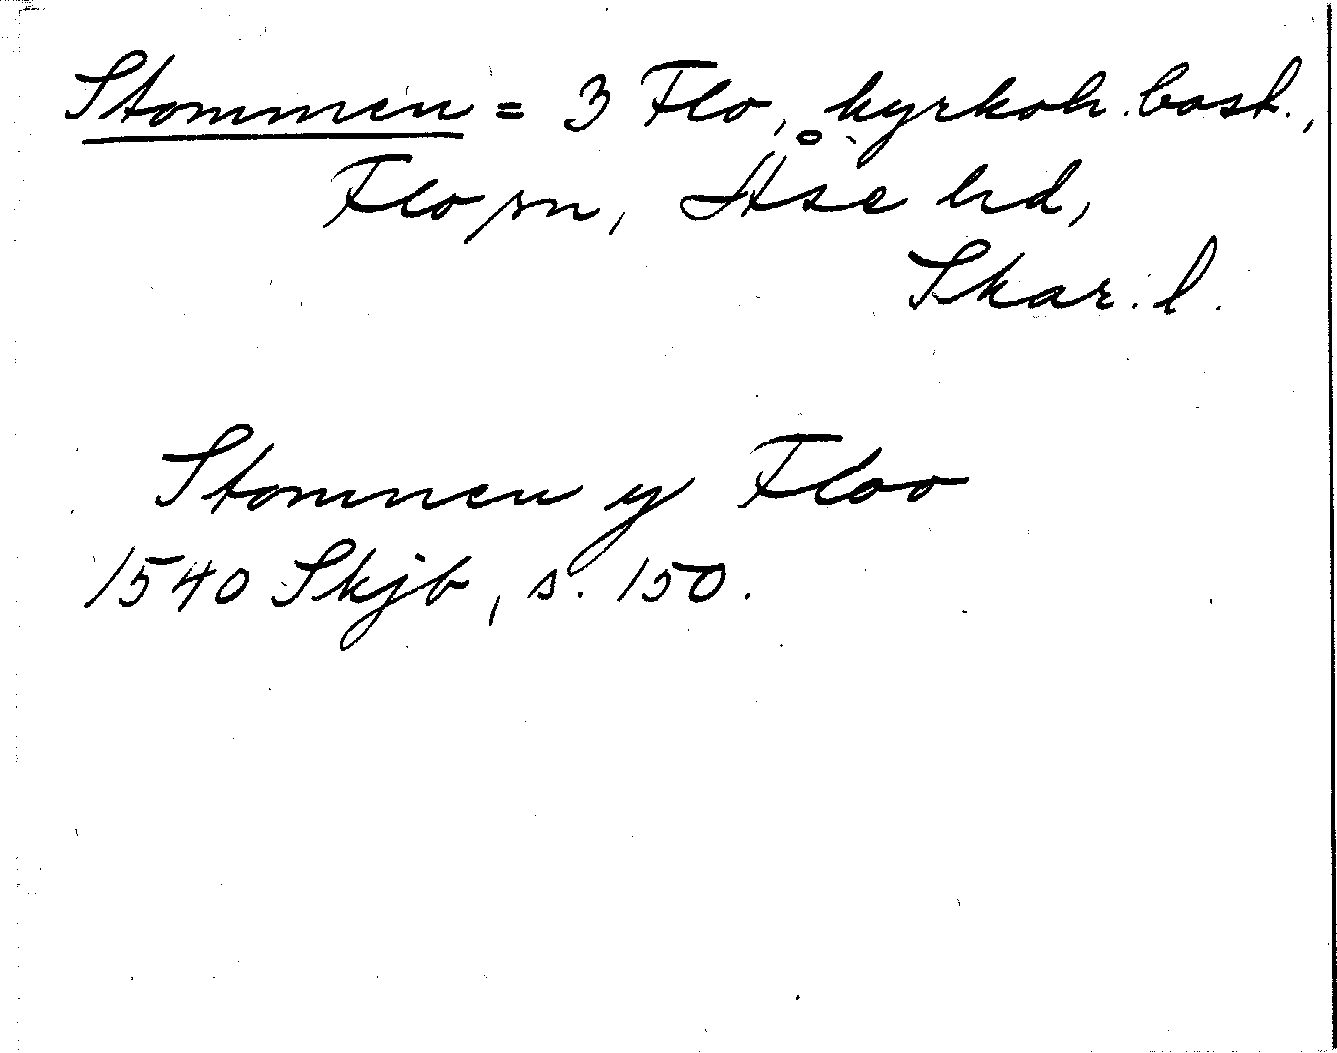 Stommen = 3 Flo, kyrkoh. bost.,
Flo sn, Åse hd,
Skar. l.
Stommen y Floo
1540 Skjb, s. 150.